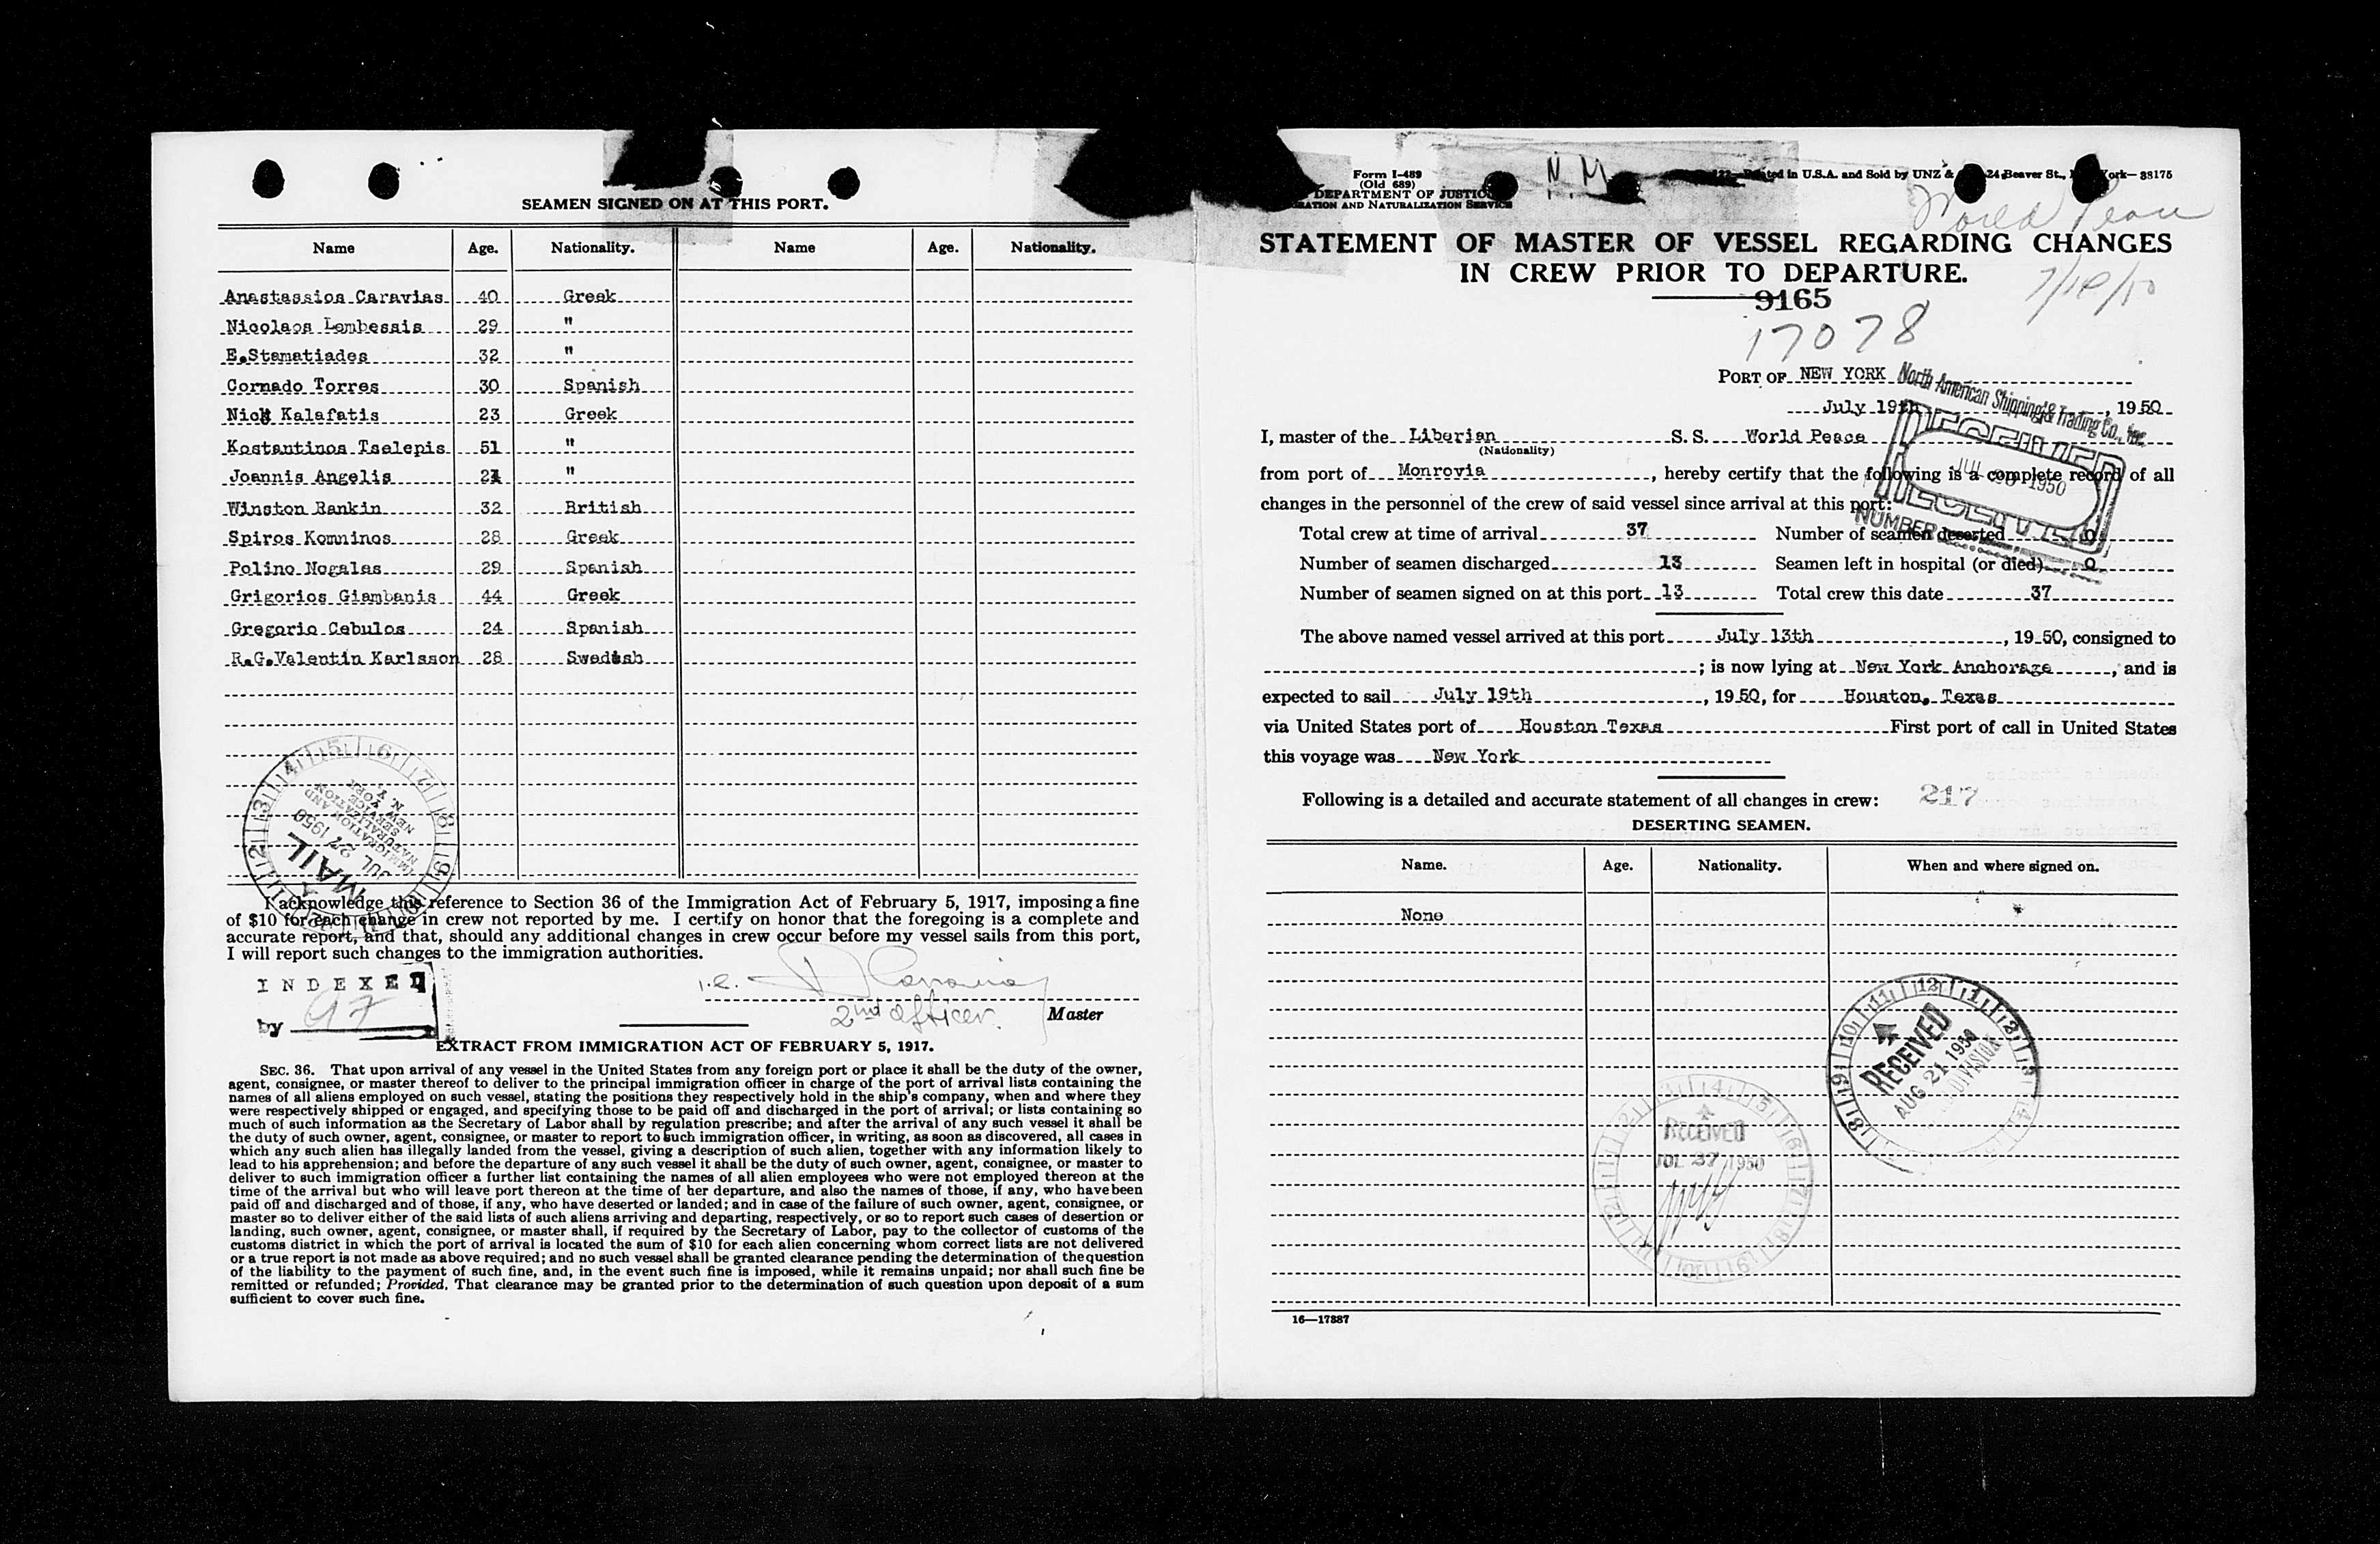 SEAMEN SIGNED ON AT THIS PORT.
Name Age. Nationality. Name Age. Nationality.
Anastassios Caravias 40 Greek
Nicolaos Lambessis 29 "
E.Stamatiades 32 "
Cornado Torres 30 Spanish
Nick Kalafatis 23 Greek
Kostantinos Tselepis 51 "
Joannis Angelis 24 "
Winston Rankin 32 British
Spiros Komninos 28 Greek
Polino Nogales 29 Spanish
Grigorios Giambanis 44 Greek
Gregorio Cebulos 24 Spanish
R.G.Valentin Karlsson 28 Swedish
IMMIGRATION AND
NATURALIZATION
SERVICE
NEW YORK
N. Y.
JUL 27 1950
MAIL
I acknowledge this reference to Section 36 of the Immigration Act of February 5, 1917, imposing a fine
of $10 for each change in crew not reported by me. I certify on honor that the foregoing is a complete and
accurate report, and that, should any additional changes in crew occur before my vessel sails from this port,
I will report such changes to the immigration authorities.
INDEXED
by 97
2nd Officer. Master
EXTRACT FROM IMMIGRATION ACT OF FEBRUARY 5, 1917.
SEC. 36. That upon arrival of any vessel in the United States from any foreign port or place it shall be the duty of the owner,
agent, consignee, or master thereof to deliver to the principal immigration officer in charge of the port of arrival lists containing the
names of all aliens employed on such vessel, stating the positions they respectively hold in the ship's company, when and where they
were respectively shipped or engaged, and specifying those to be paid off and discharged in the port of arrival; or lists containing so
much of such information as the Secretary of Labor shall by regulation prescribe; and after the arrival of any such vessel it shall be
the duty of such owner, agent, consignee, or master to report to such immigration officer, in writing, as soon as discovered, all cases in
which any such alien has illegally landed from the vessel, giving a description of such alien, together with any information likely to
lead to his apprehension; and before the departure of any such vessel it shall be the duty of such owner, agent, consignee, or master to
deliver to such immigration officer a further list containing the names of all alien employees who were not employed thereon at the
time of the arrival but who will leave port thereon at the time of her departure, and also the names of those, if any, who have been
paid off and discharged and of those, if any, who have deserted or landed; and in case of the failure of such owner, agent, consignee, or
master so to deliver either of the said lists of such aliens arriving and departing, respectively, or so to report such cases of desertion or
landing, such owner, agent, consignee, or master shall, if required by the Secretary of Labor, pay to the collector of customs of the
customs district in which the port of arrival is located the sum of $10 for each alien concerning whom correct lists are not delivered
or a true report is not made as above required; and no such vessel shall be granted clearance pending the determination of the question
of the liability to the payment of such fine, and, in the event such fine is imposed, while it remains unpaid; nor shall such fine be
remitted or refunded; Provided, That clearance may be granted prior to the determination of such question upon deposit of a sum
sufficient to cover such fine.
Form I-489
(Old 689)
DEPARTMENT OF JUSTICE
NATURALIZATION SERVICE
N. M.
in U.S.A. and Sold by UNZ & 24 Beaver St., York—38175
World Peace
STATEMENT OF MASTER OF VESSEL REGARDING CHANGES
IN CREW PRIOR TO DEPARTURE.
9165
17078
PORT OF NEW YORK
North American Shipping & Trading Co., Inc.
RECEIVED
JUL 1950
RECEIVED
NUMBER
July 19th, 1950
I, master of the Liberian S. S. World Peace
(Nationality)
from port of Monrovia, hereby certify that the following is a complete record of all
changes in the personnel of the crew of said vessel since arrival at this port:
Total crew at time of arrival 37 Number of seamen deserted 0
Number of seamen discharged 13 Seamen left in hospital (or died) 0
Number of seamen signed on at this port 13 Total crew this date 37
The above named vessel arrived at this port July 13th, 1950, consigned to
; is now lying at New York Anchorage, and is
expected to sail July 19th, 1950, for Houston, Texas
via United States port of Houston Texas First port of call in United States
this voyage was New York
Following is a detailed and accurate statement of all changes in crew: 217
DESERTING SEAMEN.
Name. Age. Nationality. When and where signed on.
None
RECEIVED
AUG 21 1950
DIVISION
RECEIVED
JUL 27 1950
16—17887